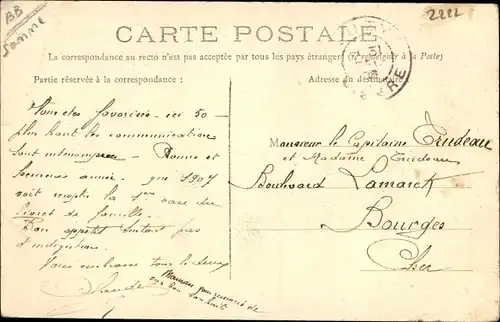 AB
Somme
2222
CARTE POSTALE
La correspondance au recto n'est pas acceptée par tous les pays étrangers (Se renseigner à la Poste)
Partie réservée à la correspondance :
Adresse du destinataire
Vous êtes favorisés - ici 50
plus haut les communications
sont interrompues - Bonne et
heureuse année - que 1907
voit remplir la 1ère case du
livret de famille.
Bon appétit surtout pas
d'indigestion
Vous embrasse tous les deux
Maman
Monsieur le Capitaine Trudeau
et Madame Trudeau
Boulevard Lamarck
Bourges
Cher